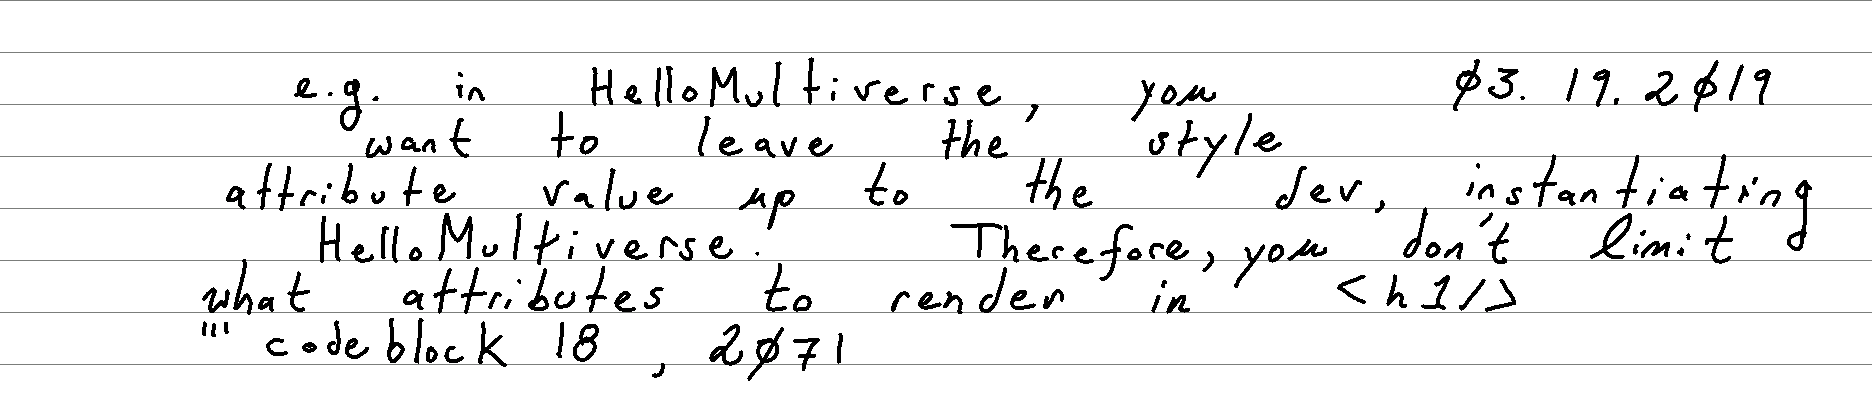 e.g. in HelloMultiverse, you 03.19.2019
want to leave the style
attribute value up to the dev, instantiating
HelloMultiverse. Therefore, you don't limit
what attributes to render in <h1/>
"' codeblock 18, 2071